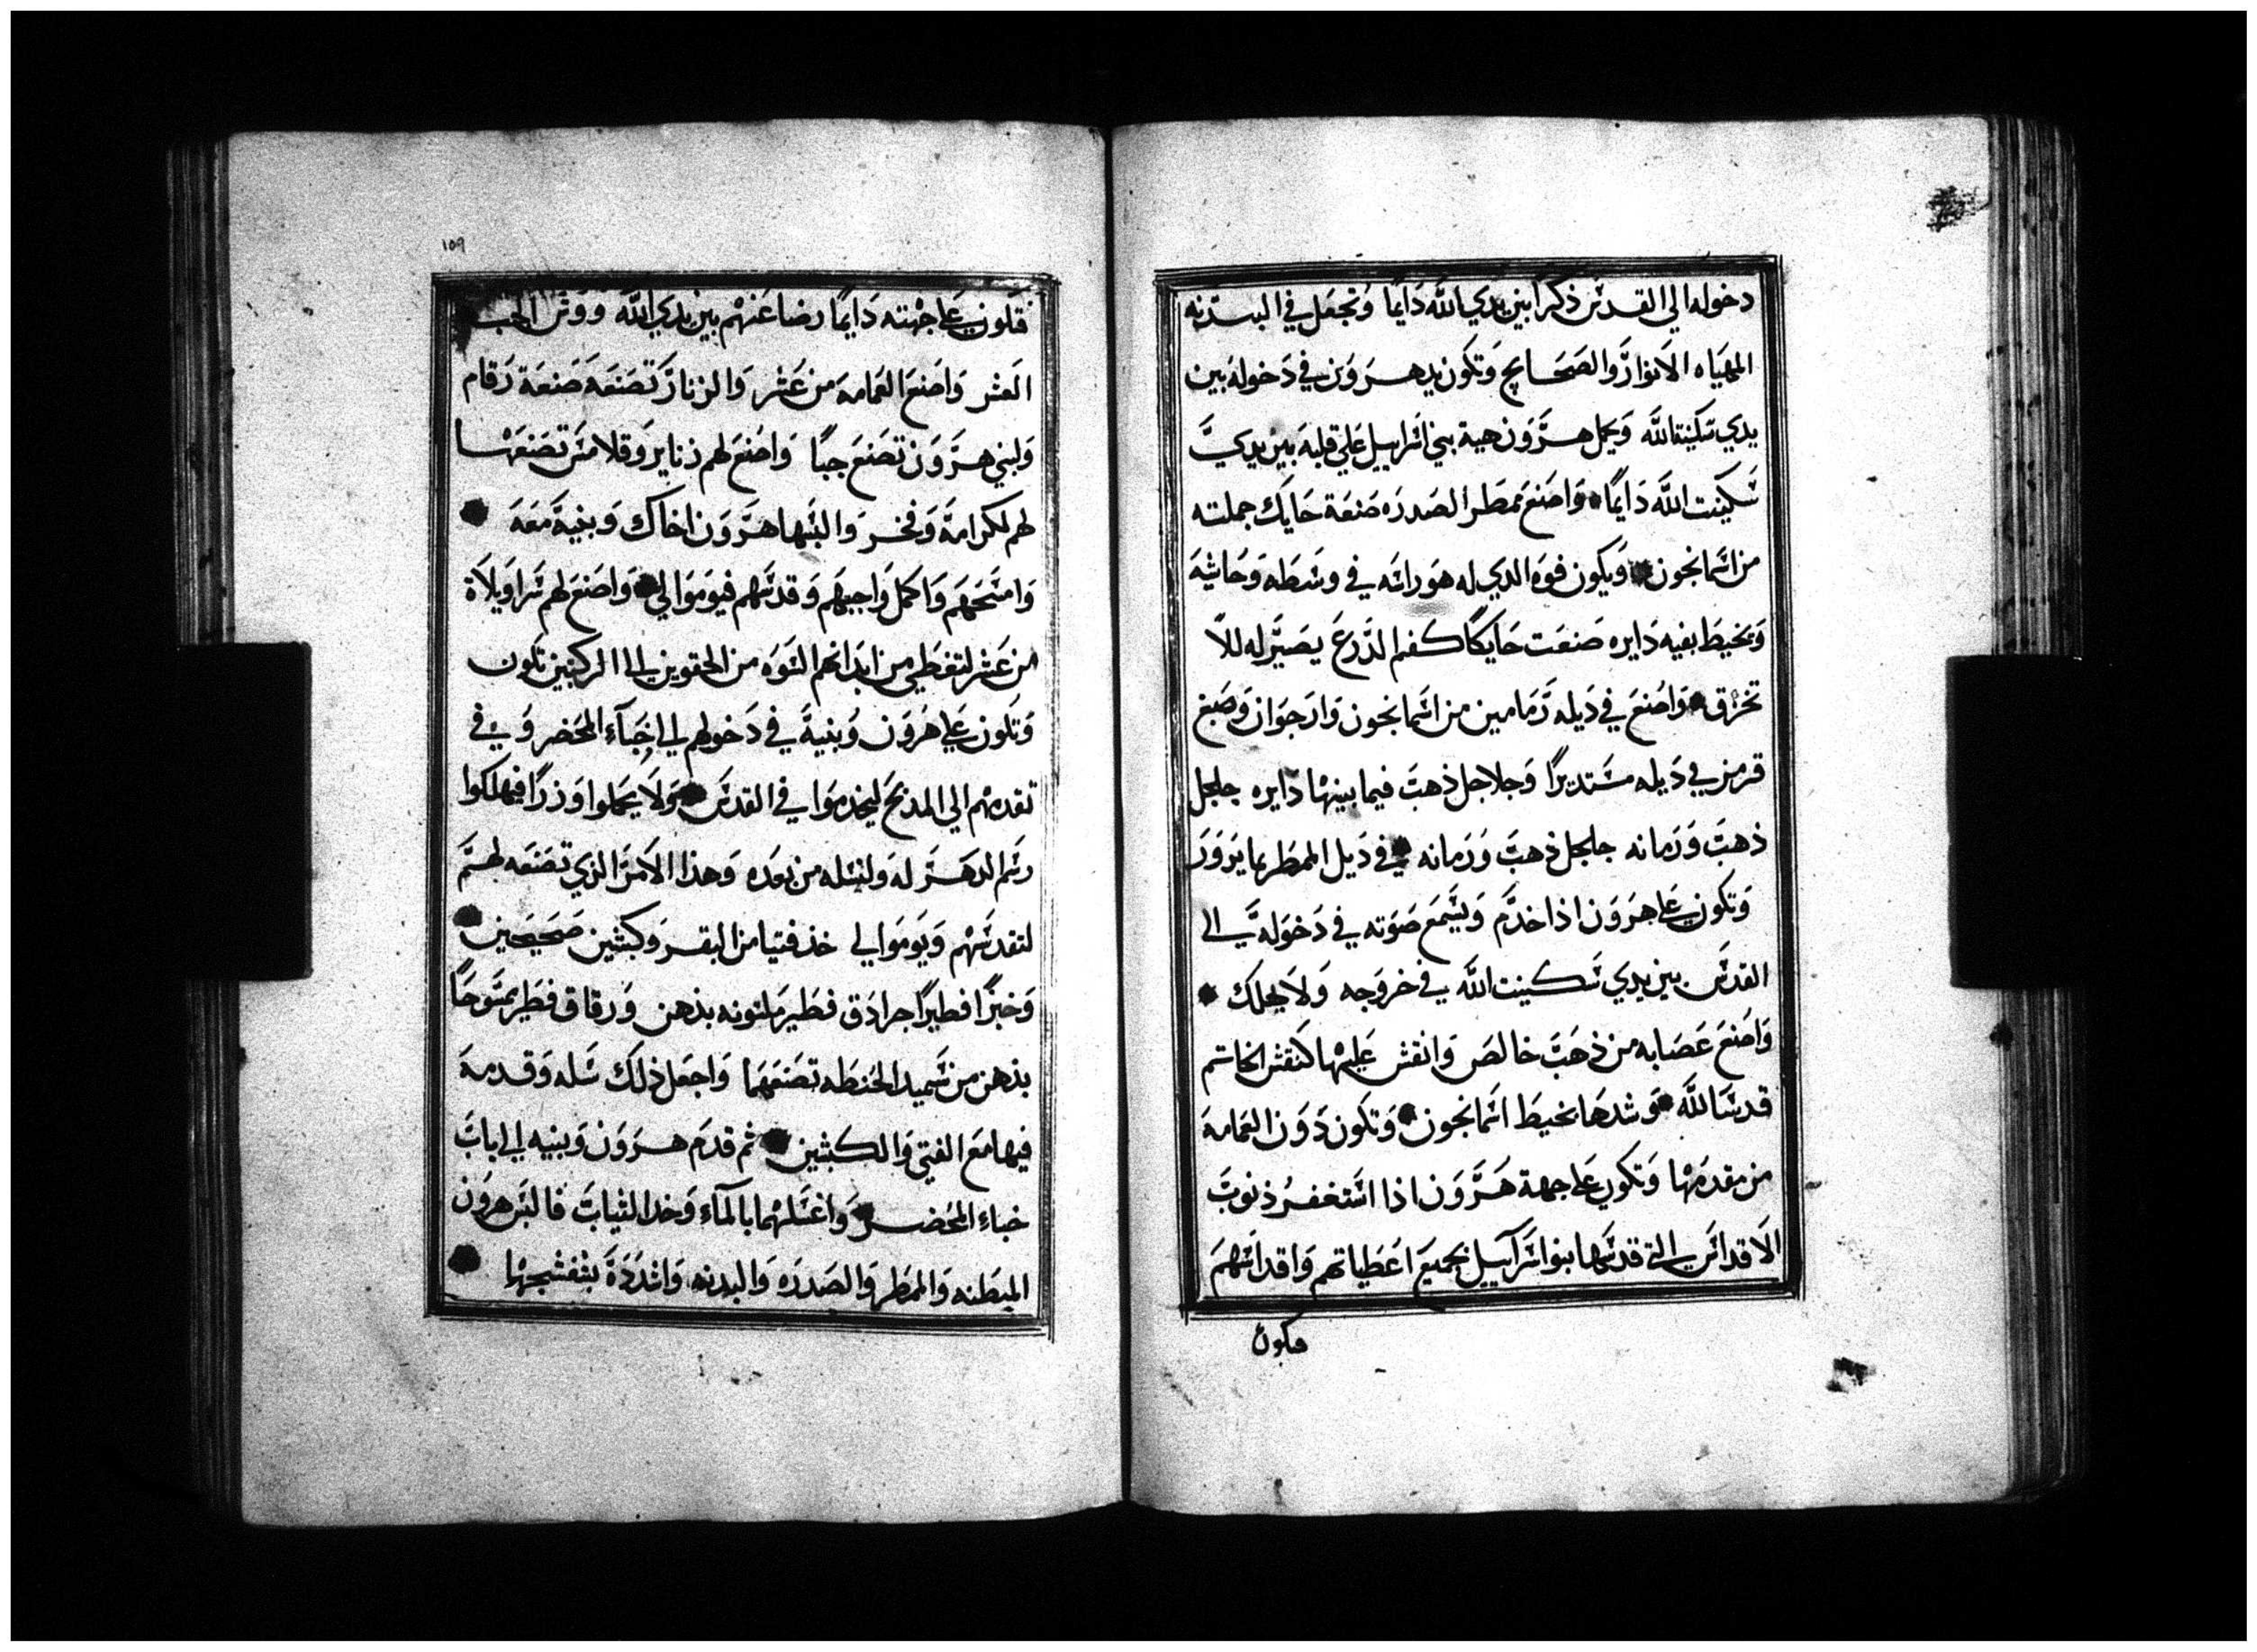 دخوله الي القدس ذكرا بين يدي الله دايما وتجعل في البدنه
المهياه الانوار والصحايح وتكون يد هرون في دخوله بين
يدي سكينة الله ويحمل هرون هبة بني اسراييل علي قلبه بين يدي
سكينت الله دايما واصنع ممطر الصدره صنعة حايك جملته
من اسمانجون ويكون فوه الدي له هو راسه في وسطه وحاشيه
وتخيط بفيه دايره صنعت حايكا كفم الدرع يصير له للا
تخرق واصنع في ديله رمامين من اسمانجون وارجوان وصبغ
قرمز في ديله مستديرا وجلاجل ذهب فيما بينها دايره جلجل
ذهب ورمانه جلجل ذهب ورمانه في ديل الممطر بما يرور
وتكون علي هرون اذا خدم ويسمع صوته في دخوله الي
القدس بين يدي سكينت الله في خروجه ولا يهلك
واصنع عصابه من ذهب خالص وانقش عليها كنقش الخاتم
قدس الله وشدها بخيط اسمانجون وتكون دون العمامه
من مقدمها وتكون علي جبهة هرون اذا استغفر ذنوب
الاقداس التي قدسها بنوا اسرآييل بجميع اعطياتهم واقداسهم
فكون
١٥٩
فكون علي جبهته دايما رضا عنهم بين يدي الله ووش الجب
العشر واصنع العمامه من عشر والزنار تصنعه صنعة رقام
ولبني هرون تصنع جبا واصنع لهم زنانير وقلانس تصنعها
لهم لكرامة وفخر والبسها هرون اخاك وبنية معه
وامسحهم واكمل واجبهم وقدسهم فيوموا لي واصنع لهم سراويلاة
من عشر لتغطي من ابدانهم السوه من الحقوين الي الركبتين تكون
وتكون علي هرون وبنية في دخولهم الي خبآء المحضر وفي
تقدمهم الي المدبح ليخدموا في القدس ولا يحملوا وزرا فيهلكوا
رسم الدهر له ولنسله من بعده وهذا الامر الذي تصنعه لهم
لتقدسهم ويوموا لي خذ فتيا من البقر وكبشين صحيحين
وخبزا فطيرا جرادق فطير ملتوته بدهن ورقاق فطير ممسوحا
بدهن من سميد الحنطه تصنعهما واجعل ذلك سله وقدمه
فيها مع الفتي والكبشين ثم قدم هرون وبنيه الي باب
خباء المحضر واغسلهما بالمآء وخد الثياب فالبس هرون
المبطنه والممطر والصدره والبدنه واشدده بشفشجها